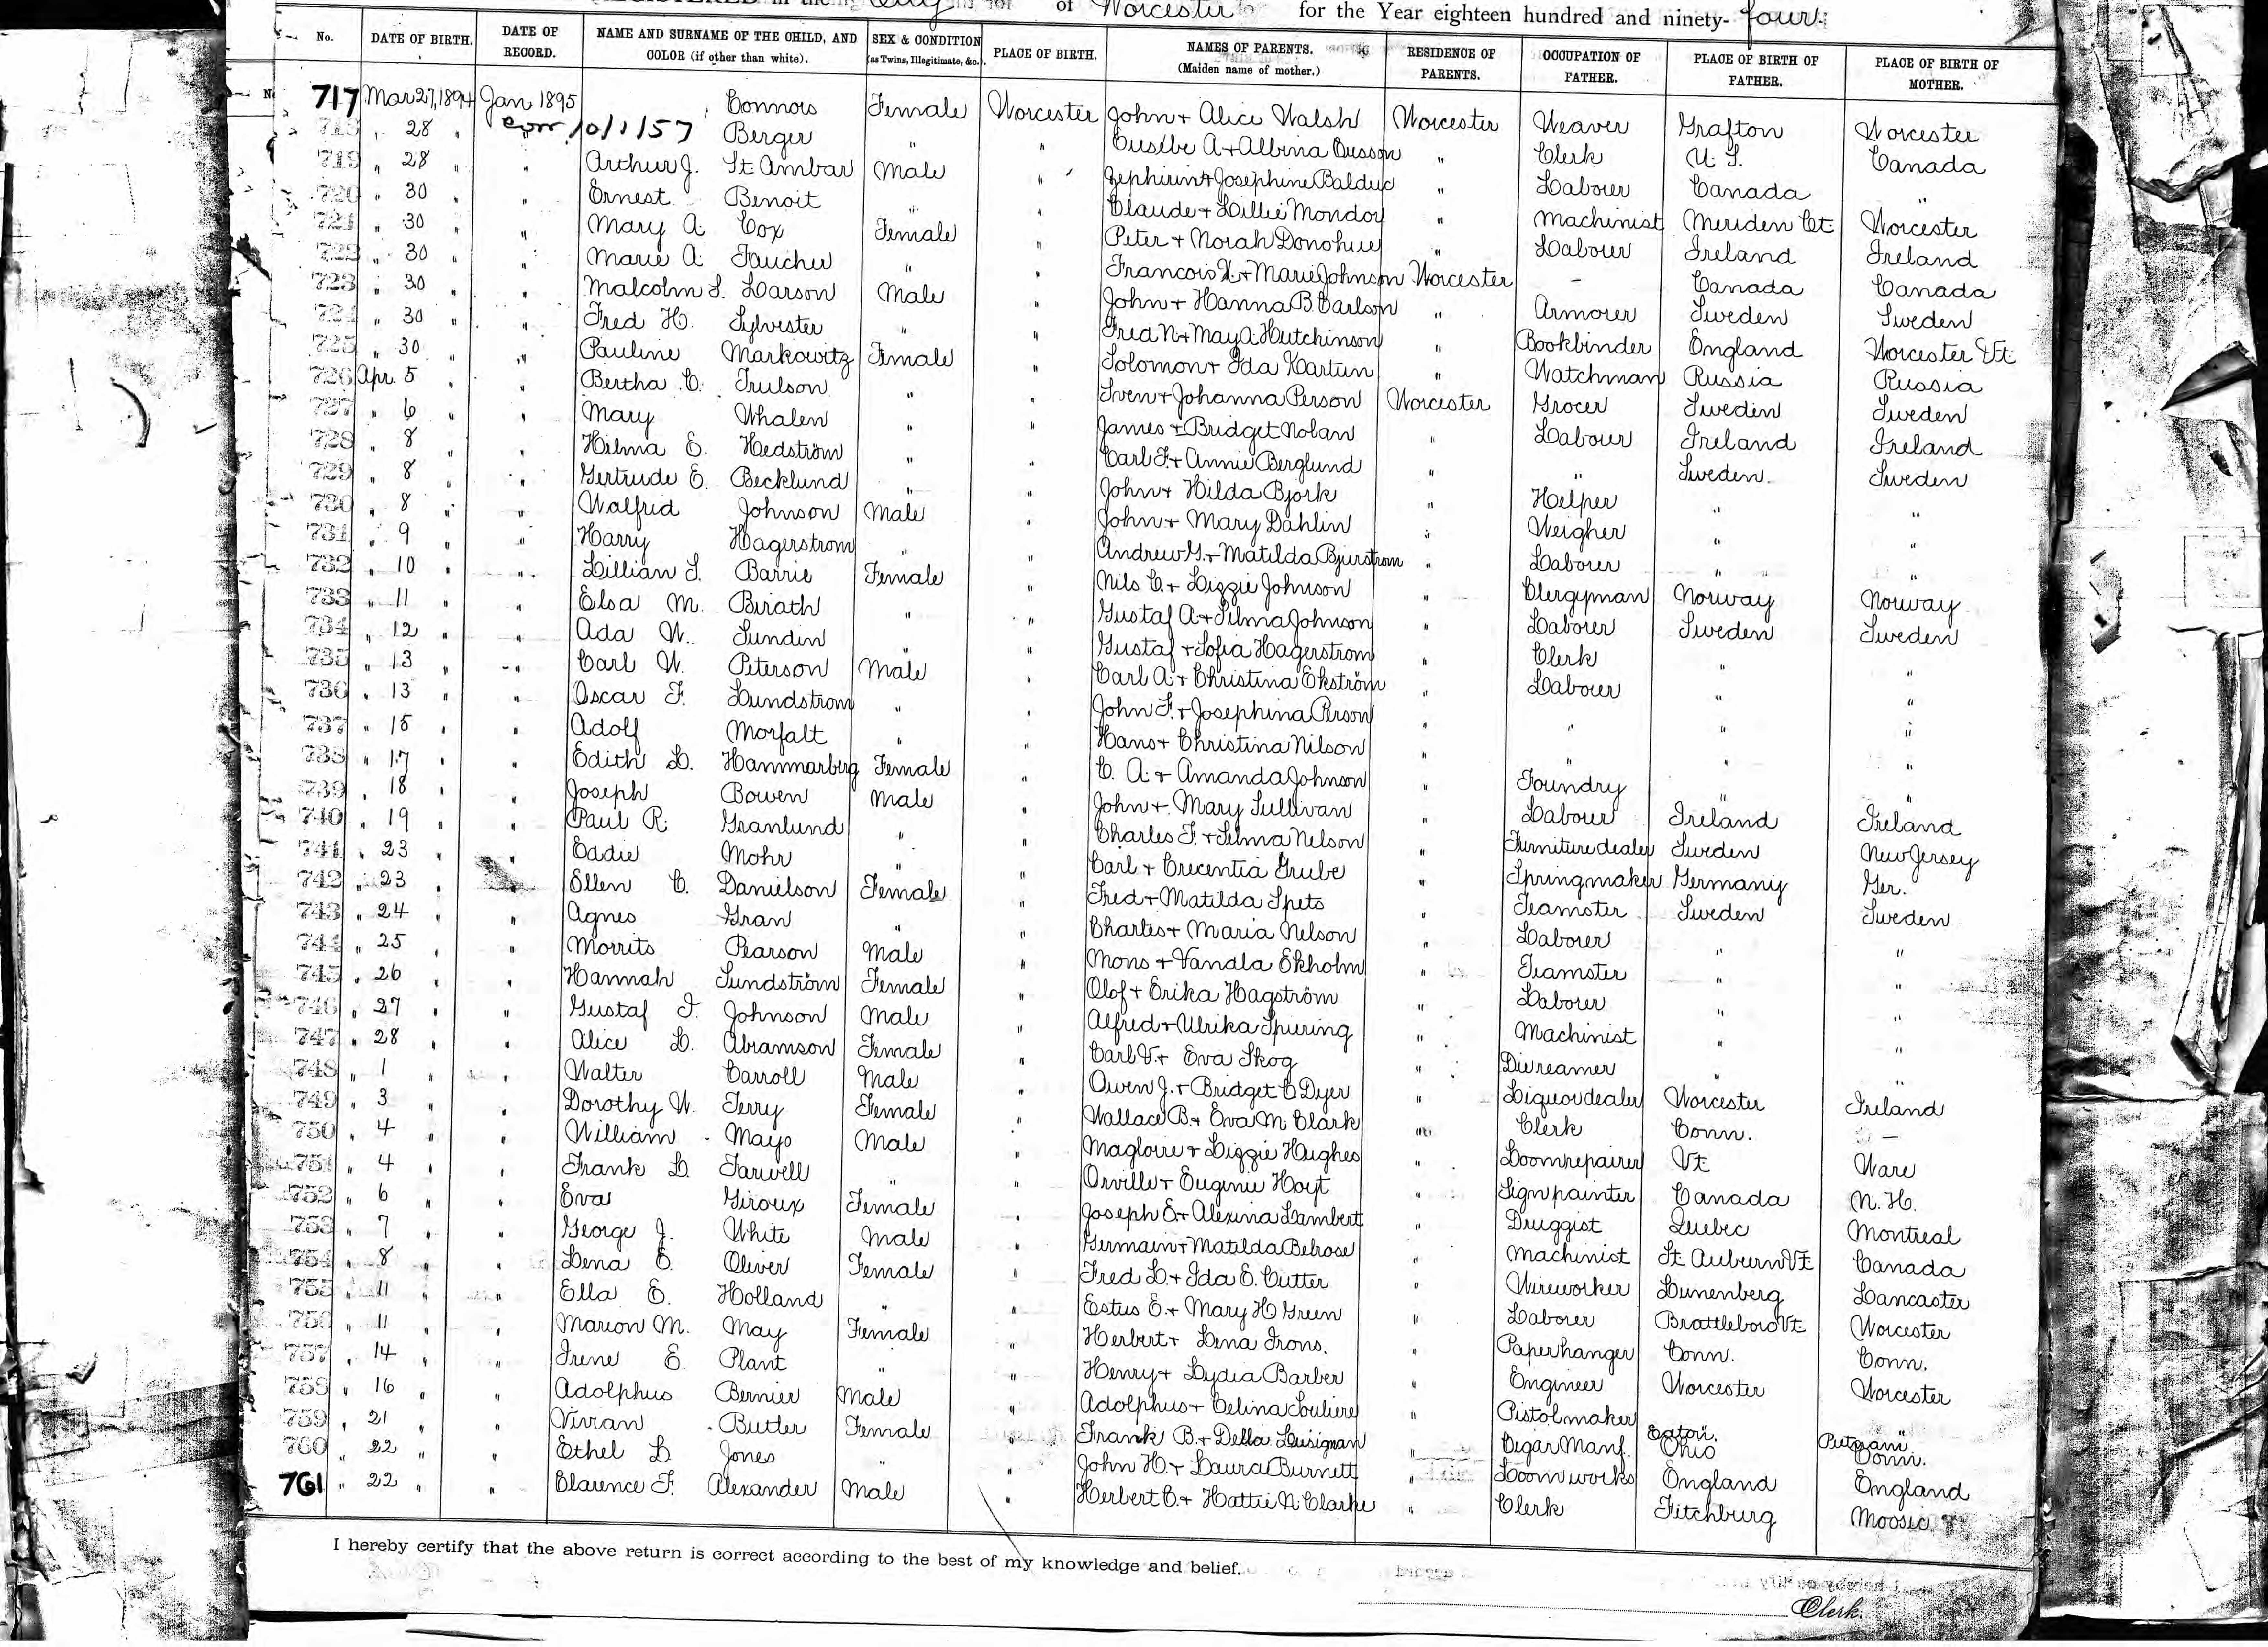 REGISTERED in the City of Worcester for the Year eighteen hundred and ninety-four.
No. DATE OF BIRTH. DATE OF RECORD. NAME AND SURNAME OF THE CHILD, AND COLOR (if other than white). SEX & CONDITION (as Twins, Illegitimate, &c.). PLACE OF BIRTH. NAMES OF PARENTS. (Maiden name of mother.) RESIDENCE OF PARENTS. OCCUPATION OF FATHER. PLACE OF BIRTH OF FATHER. PLACE OF BIRTH OF MOTHER.
717 Mar 27, 1894 Jan 1895 Connors Female Worcester John + Alice Walsh Worcester Weaver Grafton Worcester
718 " 28 " corr 10/1/57 Berger " " Eusebe A + Albina Busson " Clerk U.S. Canada
719 " 28 " " Arthur J. St Ambar Male " Zephirin + Josephine Balduc " Labour Canada "
720 " 30 " " Ernest Benoit " " Claude + Lillie Mondor " Machinist Meriden Ct. Worcester
721 " 30 " " Mary A. Cox Female " Peter + Norah Donohue " Labour Ireland Ireland
722 " 30 " " Marie A. Faucher " " Francois X. + Marie Johnson Worcester - Canada Canada
723 " 30 " " Malcolm S. Larson Male " John + Hanna B. Carlson " Armorer Sweden Sweden
724 " 30 " " Fred H. Sylvester " " Fred N. + May A. Hutchinson " Bookbinder England Worcester Vt.
725 " 30 " " Pauline Markowitz Female " Solomon + Ida Kartun " Watchman Russia Russia
726 Apr. 5 " " Bertha C. Trulson " " Sven + Johanna Person Worcester Grocer Sweden Sweden
727 " 6 " " Mary Whalen " " James + Bridget Nolan " Labour Ireland Ireland
728 " 8 " " Hilma E. Hedström " " Carl F. + Annie Berglund " " Sweden. Sweden
729 " 8 " " Gertrude E. Becklund " " John + Hilda Bjork " Helper " "
730 " 8 " " Walfrid Johnson Male " John + Mary Dahlin " Weigher " "
731 " 9 " " Harry Hagerstrom " " Andrew G. + Matilda Bjurstrom " Laborer " "
732 " 10 " " Lillian S. Barrie Female " Nils C. + Lizzie Johnson " Clergyman Norway Norway
733 " 11 " " Elsa M. Birath " " Gustaf A + Selma Johnson " Laborer Sweden Sweden
734 " 12 " " Ada W. Sundin " " Gustaf + Sofia Hagerstrom " Clerk " "
735 " 13 " " Carl W. Peterson Male " Carl A. + Christina Ekström " Labour " "
736 " 13 " " Oscar F. Lundstrom " " John F. + Josephina Person " " " "
737 " 15 " " Adolf Morfalt " " Hans + Christina Nilson " " " "
738 " 17 " " Edith L. Hammarberg Female " C. A. + Amanda Johnson " Foundry " "
739 " 18 " " Joseph Bowen Male " John + Mary Sullivan " Labour Ireland Ireland
740 " 19 " " Paul R. Granlund " " Charles F. + Selma Nelson " Furniture dealer Sweden New Jersey
741 " 23 " " Eddie Mohr " " Carl + Crecentia Grube " Springmaker Germany Ger.
742 " 23 " " Ellen C. Danielson Female " Fred + Matilda Spets " Teamster Sweden Sweden
743 " 24 " " Agnes Gran " " Charles + Maria Nelson " Laborer " "
744 " 25 " " Morrits Pearson Male " Mons + Vandla Ekholm " Teamster " "
745 " 26 " " Hannah Sundström Female " Olof + Erika Hagström " Laborer " "
746 " 27 " " Gustaf T. Johnson Male " Alfred + Ulrika Spuring " Machinist " "
747 " 28 " " Alice L. Abramson Female " Carl V. + Eva Skog " Diereamer " "
748 " 1 " " Walter Carroll Male " Owen J. + Bridget C Dyer " Liquor dealer Worcester Ireland
749 " 3 " " Dorothy W. Terry Female " Wallace B. + Eva M. Clark " Clerk Conn. -
750 " 4 " " William Mayo Male " Magloire + Lizzie Hughes " Loomrepairer Vt Ware
751 " 4 " " Frank L. Farwell " " Orville + Eugenie Hoyt " Sign painter Canada N. H.
752 " 6 " " Eva Giroux Female " Joseph E. + Alexina Lambert " Druggist Quebec Montreal
753 " 7 " " George J. White Male " Germain + Matilda Belrose " Machinist St. Auburn Vt. Canada
754 " 8 " " Lena E. Oliver Female " Fred L. + Ida E. Cutter " Wireworker Lunenberg Lancaster
755 " 11 " " Ella E. Holland " " Estus E. + Mary H Green " Laborer Brattleboro Vt. Worcester
756 " 11 " " Marion M. May Female " Herbert + Lena Irons. " Paperhanger Conn. Conn.
757 " 14 " " Irene E. Plant " " Henry + Lydia Barber " Engineer Worcester Worcester
758 " 16 " " Adolphus Bernier Male " Adolphus + Celina Couliere " Pistolmaker "
759 " 21 " " Vivian Butler Female " Frank B. + Della Lusignan " Cigar Manf. Eaton. Ohio Putnam. Conn.
760 " 22 " " Ethel L Jones " " John H. + Laura Burnett " Loomworks England England
761 " 22 " " Clarence F. Alexander Male " Herbert C. + Hattie N. Clarke " Clerk Fitchburg Moosic
I hereby certify that the above return is correct according to the best of my knowledge and belief.
Clerk.